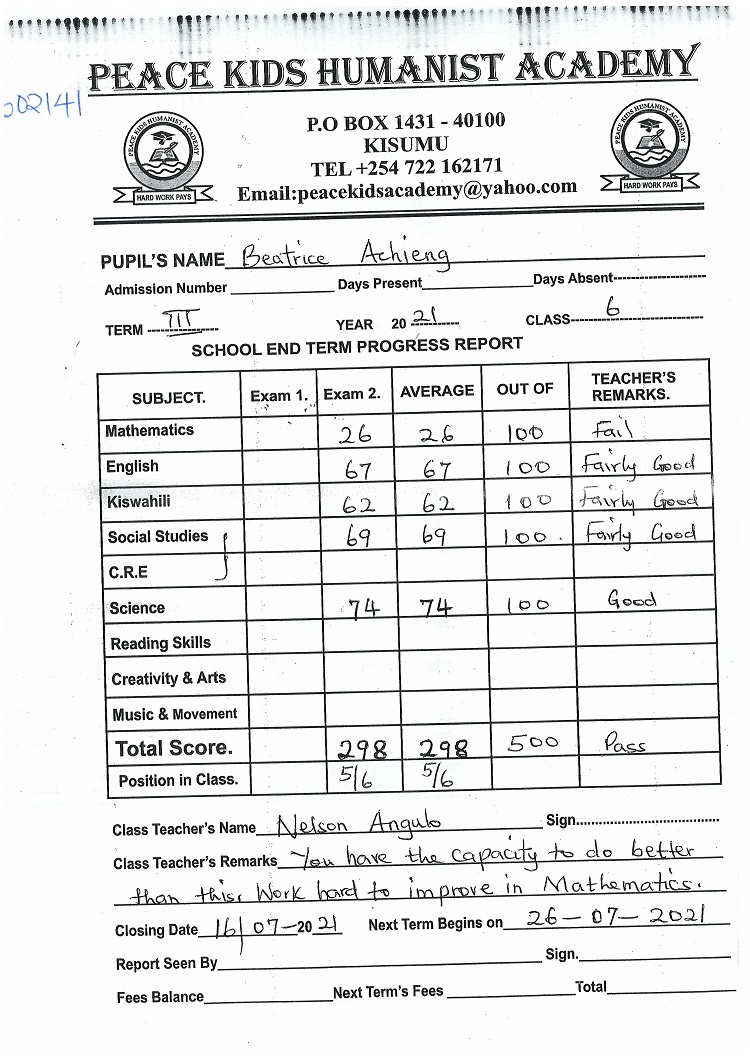 PEACE KIDS HUMANIST ACADEMY
002141
PEACE KIDS HUMANIST ACADEMY
HARD WORK PAYS
P.O BOX 1431 - 40100
KISUMU
TEL +254 722 162171
Email:peacekidsacademy@yahoo.com
PEACE KIDS HUMANIST ACADEMY
HARD WORK PAYS
PUPIL'S NAME Beatrice Achieng
Admission Number Days Present Days Absent
TERM III YEAR 20 21 CLASS 6
SCHOOL END TERM PROGRESS REPORT
SUBJECT. Exam 1. Exam 2. AVERAGE OUT OF TEACHER'S REMARKS.
Mathematics 26 26 100 Fail
English 67 67 100 Fairly Good
Kiswahili 62 62 100 Fairly Good
Social Studies 69 69 100 Fairly Good
C.R.E
Science 74 74 100 Good
Reading Skills
Creativity & Arts
Music & Movement
Total Score. 298 298 500 Pass
Position in Class. 5/6 5/6
Class Teacher's Name Nelson Angulo Sign
Class Teacher's Remarks You have the capacity to do better
than this. Work hard to improve in Mathematics.
Closing Date 16/07-20 21 Next Term Begins on 26-07-2021
Report Seen By Sign.
Fees Balance Next Term's Fees Total